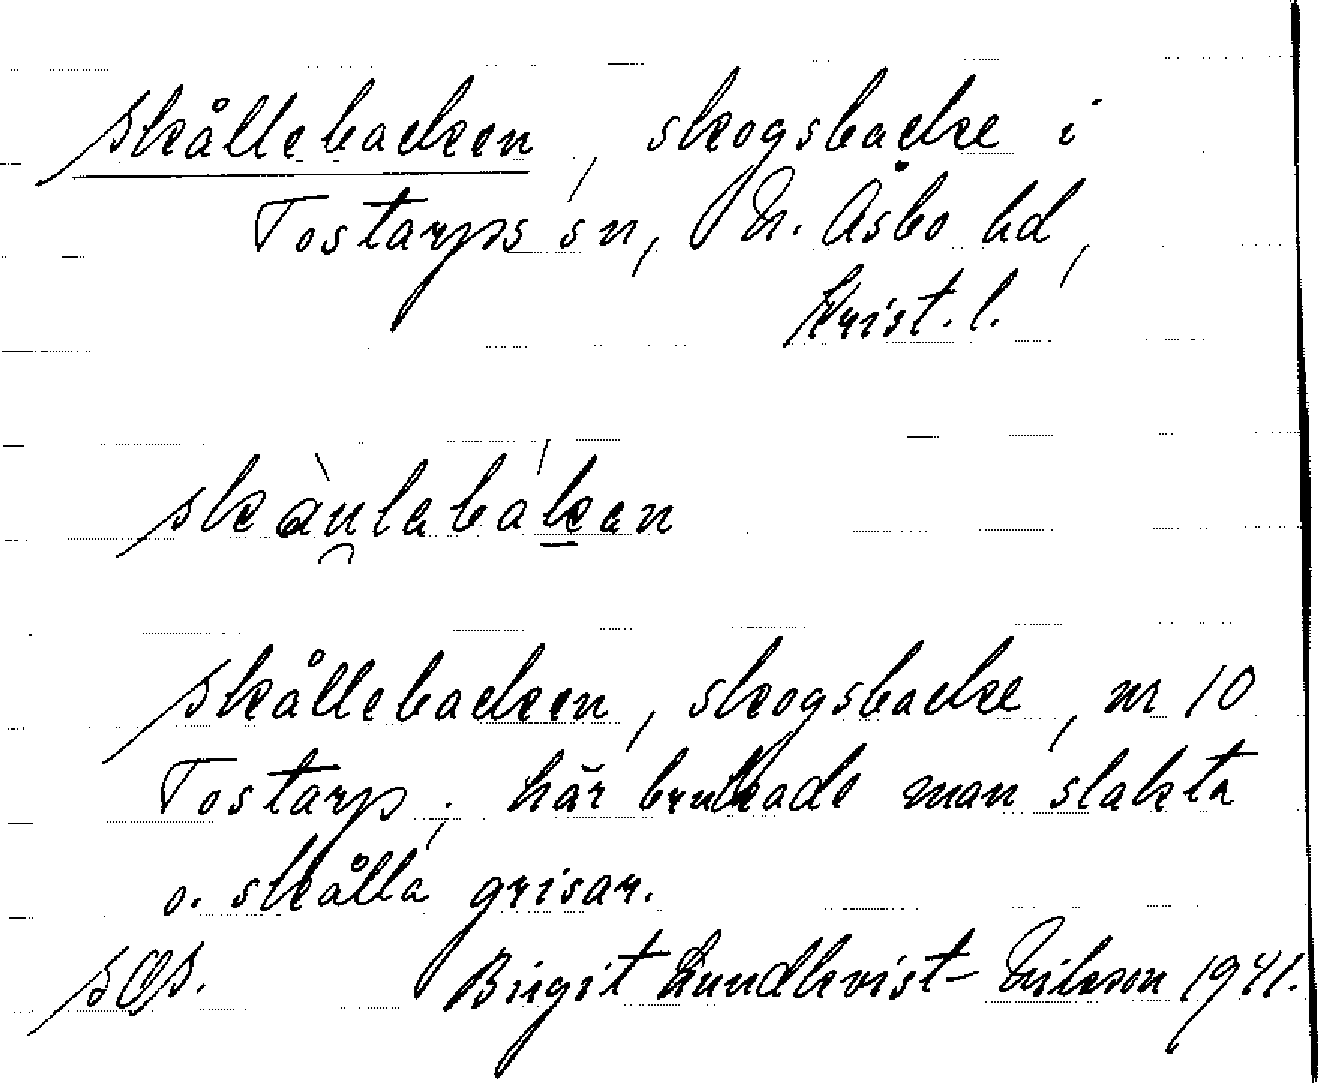 Skållebacken, skogsbacke i
Tostarps sn, N. Åsbo hd,
Krist. l.
skàu̯lebák̠en
Skållebacken, skogsbacke, nr 10
Tostarp; här brukade man slakta
o. skålla grisar.
SOS. Birgit Lundkvist-Nilsson 1941.